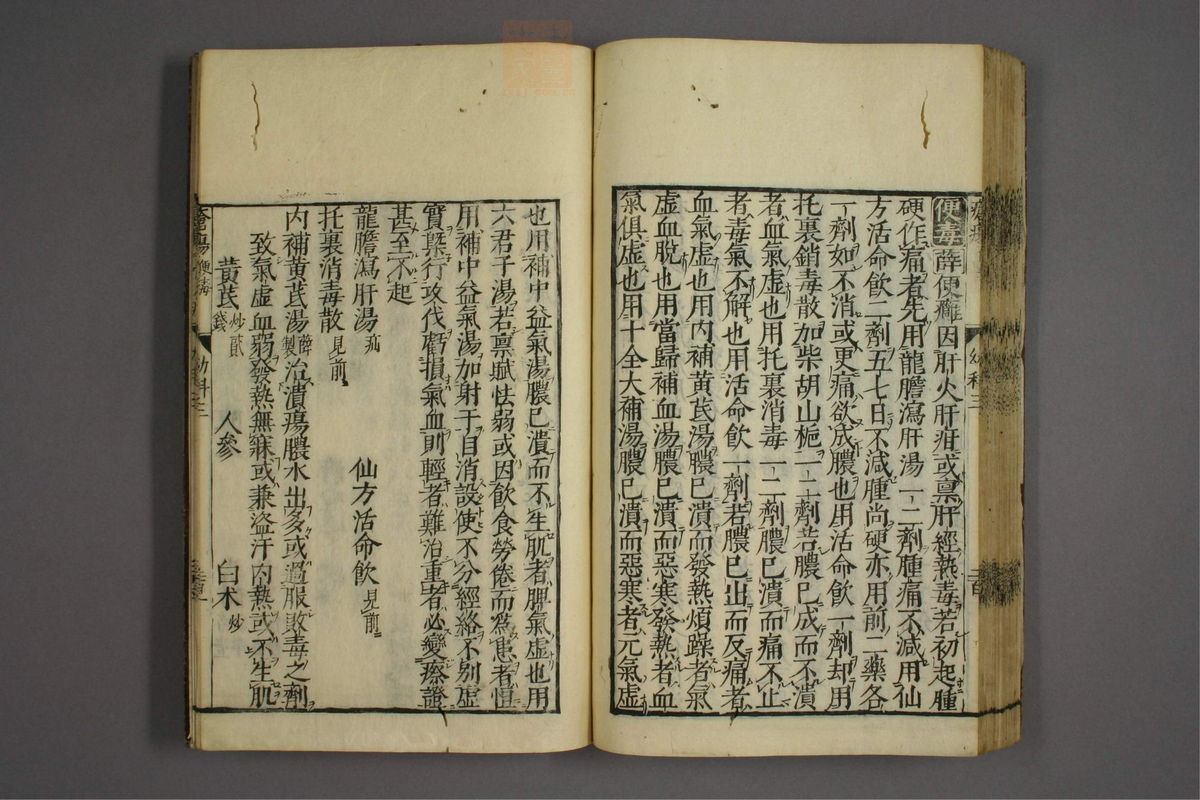 便毒薛便癰因肝火肝疳或禀肝經熱毒若初起腫
硬作痛者先用龍膽瀉肝湯一二劑腫痛不減用仙
方活命飲二劑五七日不減腫尚硬亦用前二藥各
一劑如不消或更痛欲成膿也用活命飲一劑却用
托裏銷毒散加柴胡山梔一二劑若膿已成而不潰
者血氣虛也用托裏消毒一二劑膿已潰而痛不止
者毒氣不解也用活命飲一劑若膿已出而反痛者
血氣虛也用內補黃芪湯膿已潰而發熱煩躁者氣
虛血脫也用當歸補血湯膿已潰而惡寒發熱者血
氣俱虛也用十全大補湯膿已潰而惡寒者元氣虛
幼科三
也用補中益氣湯膿已潰而不生肌者脾氣虛也用
六君子湯若禀賦怯弱或因飲食勞倦而為患者惟
用補中益氣湯加射干自消設使不分經絡不別虛
實槩行攻伐虧損氣血則輕者難治重者必變瘵證
甚至不起
龍膽瀉肝湯疝 仙方活命飲見前
托裏消毒散見前
內補黃芪湯薛製治潰瘍膿水出多或過服敗毒之劑
致氣虛血弱發熱無寐或兼盜汗內熱或不生肌
黃芪炒貳錢 人參 白术炒
瘡瘍 幼科三